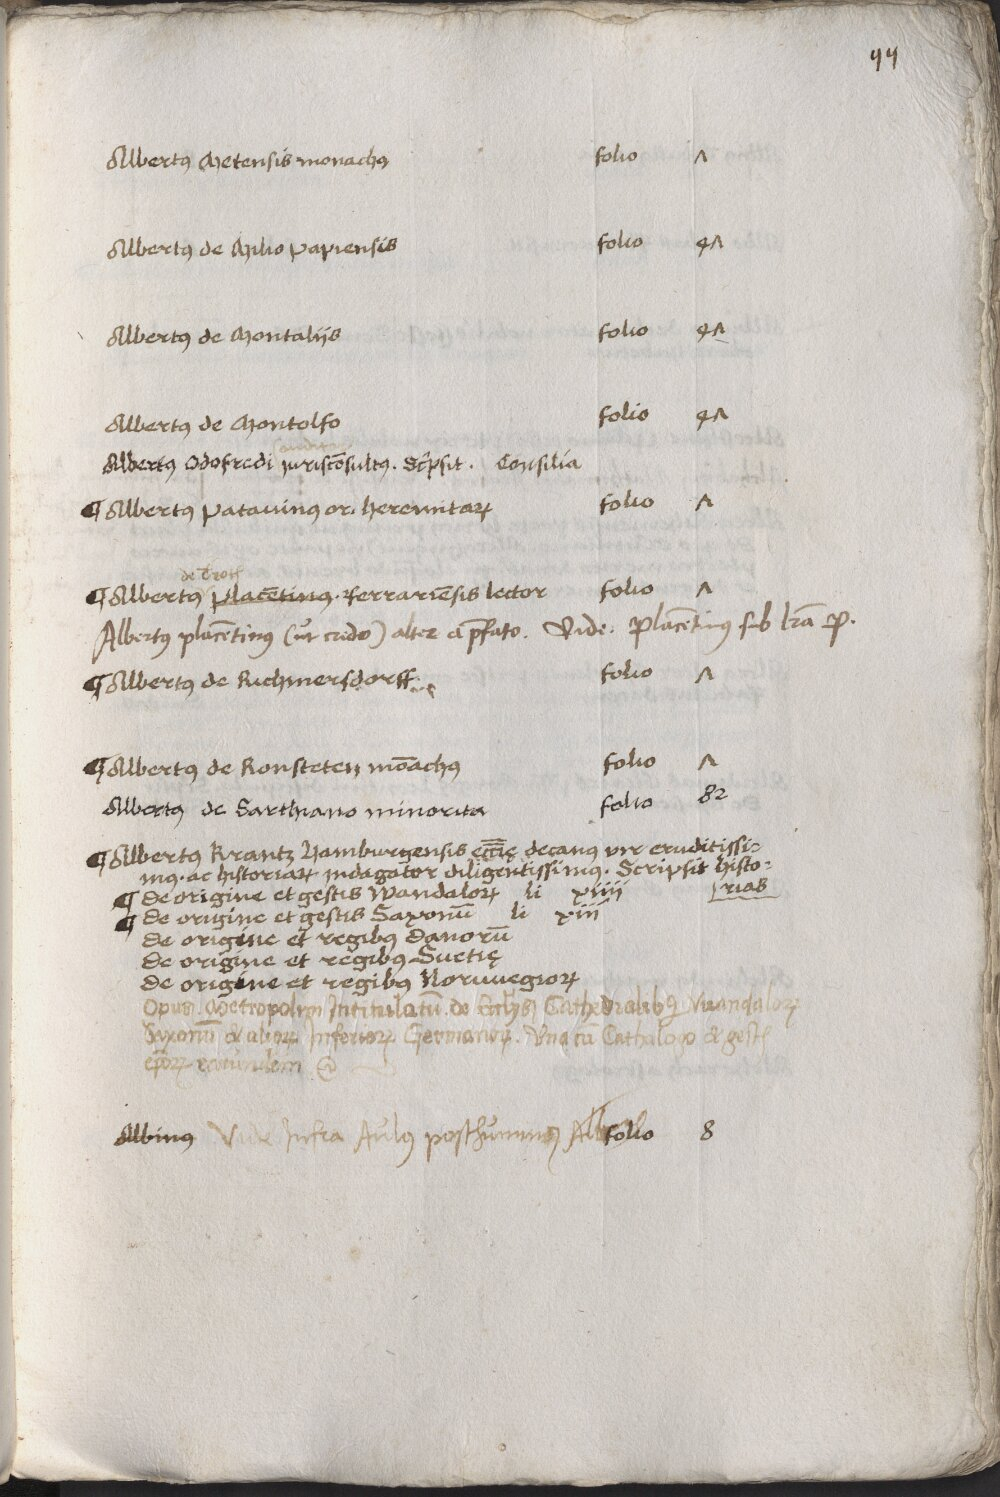 44
Albertꝰ Metensis monachꝰ folio ʌ
Albertꝰ de Milio papiensis folio 4ʌ
Albertꝰ de Montalijs folio 4ʌ
Albertꝰ de Montolfo folio 4ʌ
Albertꝰ Odofredi iuriscōsultꝰ. Scͥpsit. Consilia
¶ Albertꝰ patauinꝰ or. heremitaꝝ folio ʌ
de Troth
¶ Albertꝰ placētinꝰ. Ferrariēsis lector folio ʌ
Albertꝰ placētinꝰ (ut credo) alter a p̄fato. Vide. Placētinꝰ sub l̄ra P.
¶ Albertꝰ de Richmersdorff. folio ʌ
¶ Albertꝰ de Ronsteten mōachꝰ folio ʌ
Albertꝰ de Sarthiano minorita folio 82
¶ Albertꝰ Krantz Hamburgensis eccl̄ię decanꝰ vir eruditissi-
mꝰ. ac historiaꝝ indagator diligentissimꝰ. Scripsit histo-
rias
¶ de origine et gestis Wandaloꝝ li xiiij
¶ de origine et gestis Saxonū li xiij
de origine et regibꝰ Danorū
de origine et regibꝰ Suetię
de origine et regibꝰ Noruuegioꝝ
Opus Metropolim Intitulatū. de Ecclijs Cathedralibꝰ Vuandaloꝝ
Saxonū & alioꝝ Inferioꝝ Germanoꝝ. Vna cū Cathalogo & gestis
ep̄oꝝ earundem
Albinus Vide Infra Aulꝰ posthumius folio 8